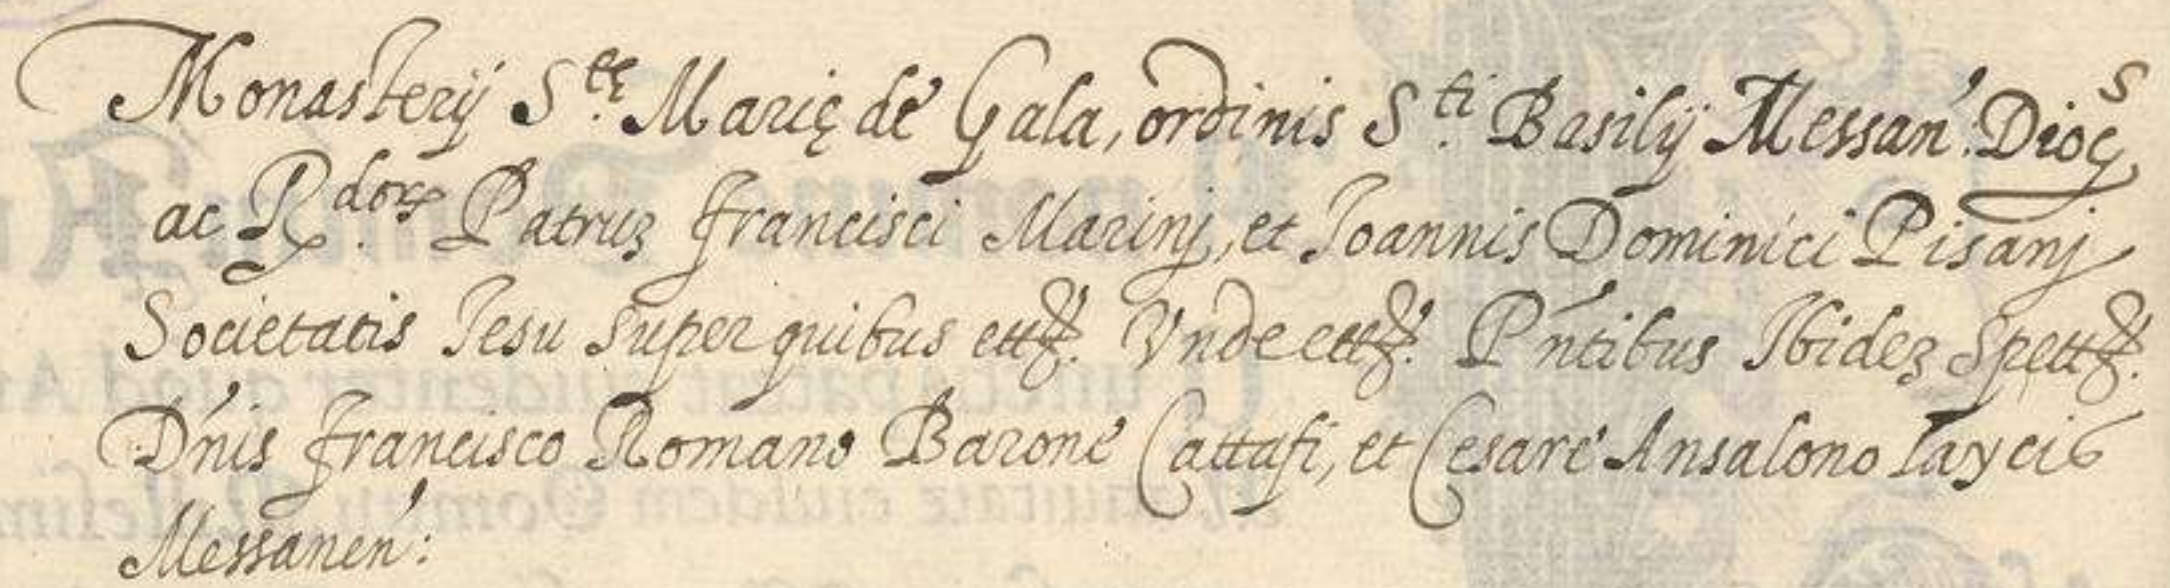 Monasterij S.tę Marię de Gala, ordinis S.ti Basilij Messan: Diocs
ac R.dorum Patruz francisci Marinj, et Joannis Dominici Pisanj
Societatis Jesu super quibus ett. Vnde ett. Pntibus Ibidez Spett.
Dnis francisco Romano Barone Cattafi, et Cesare Ansalono laycis
Messanen: